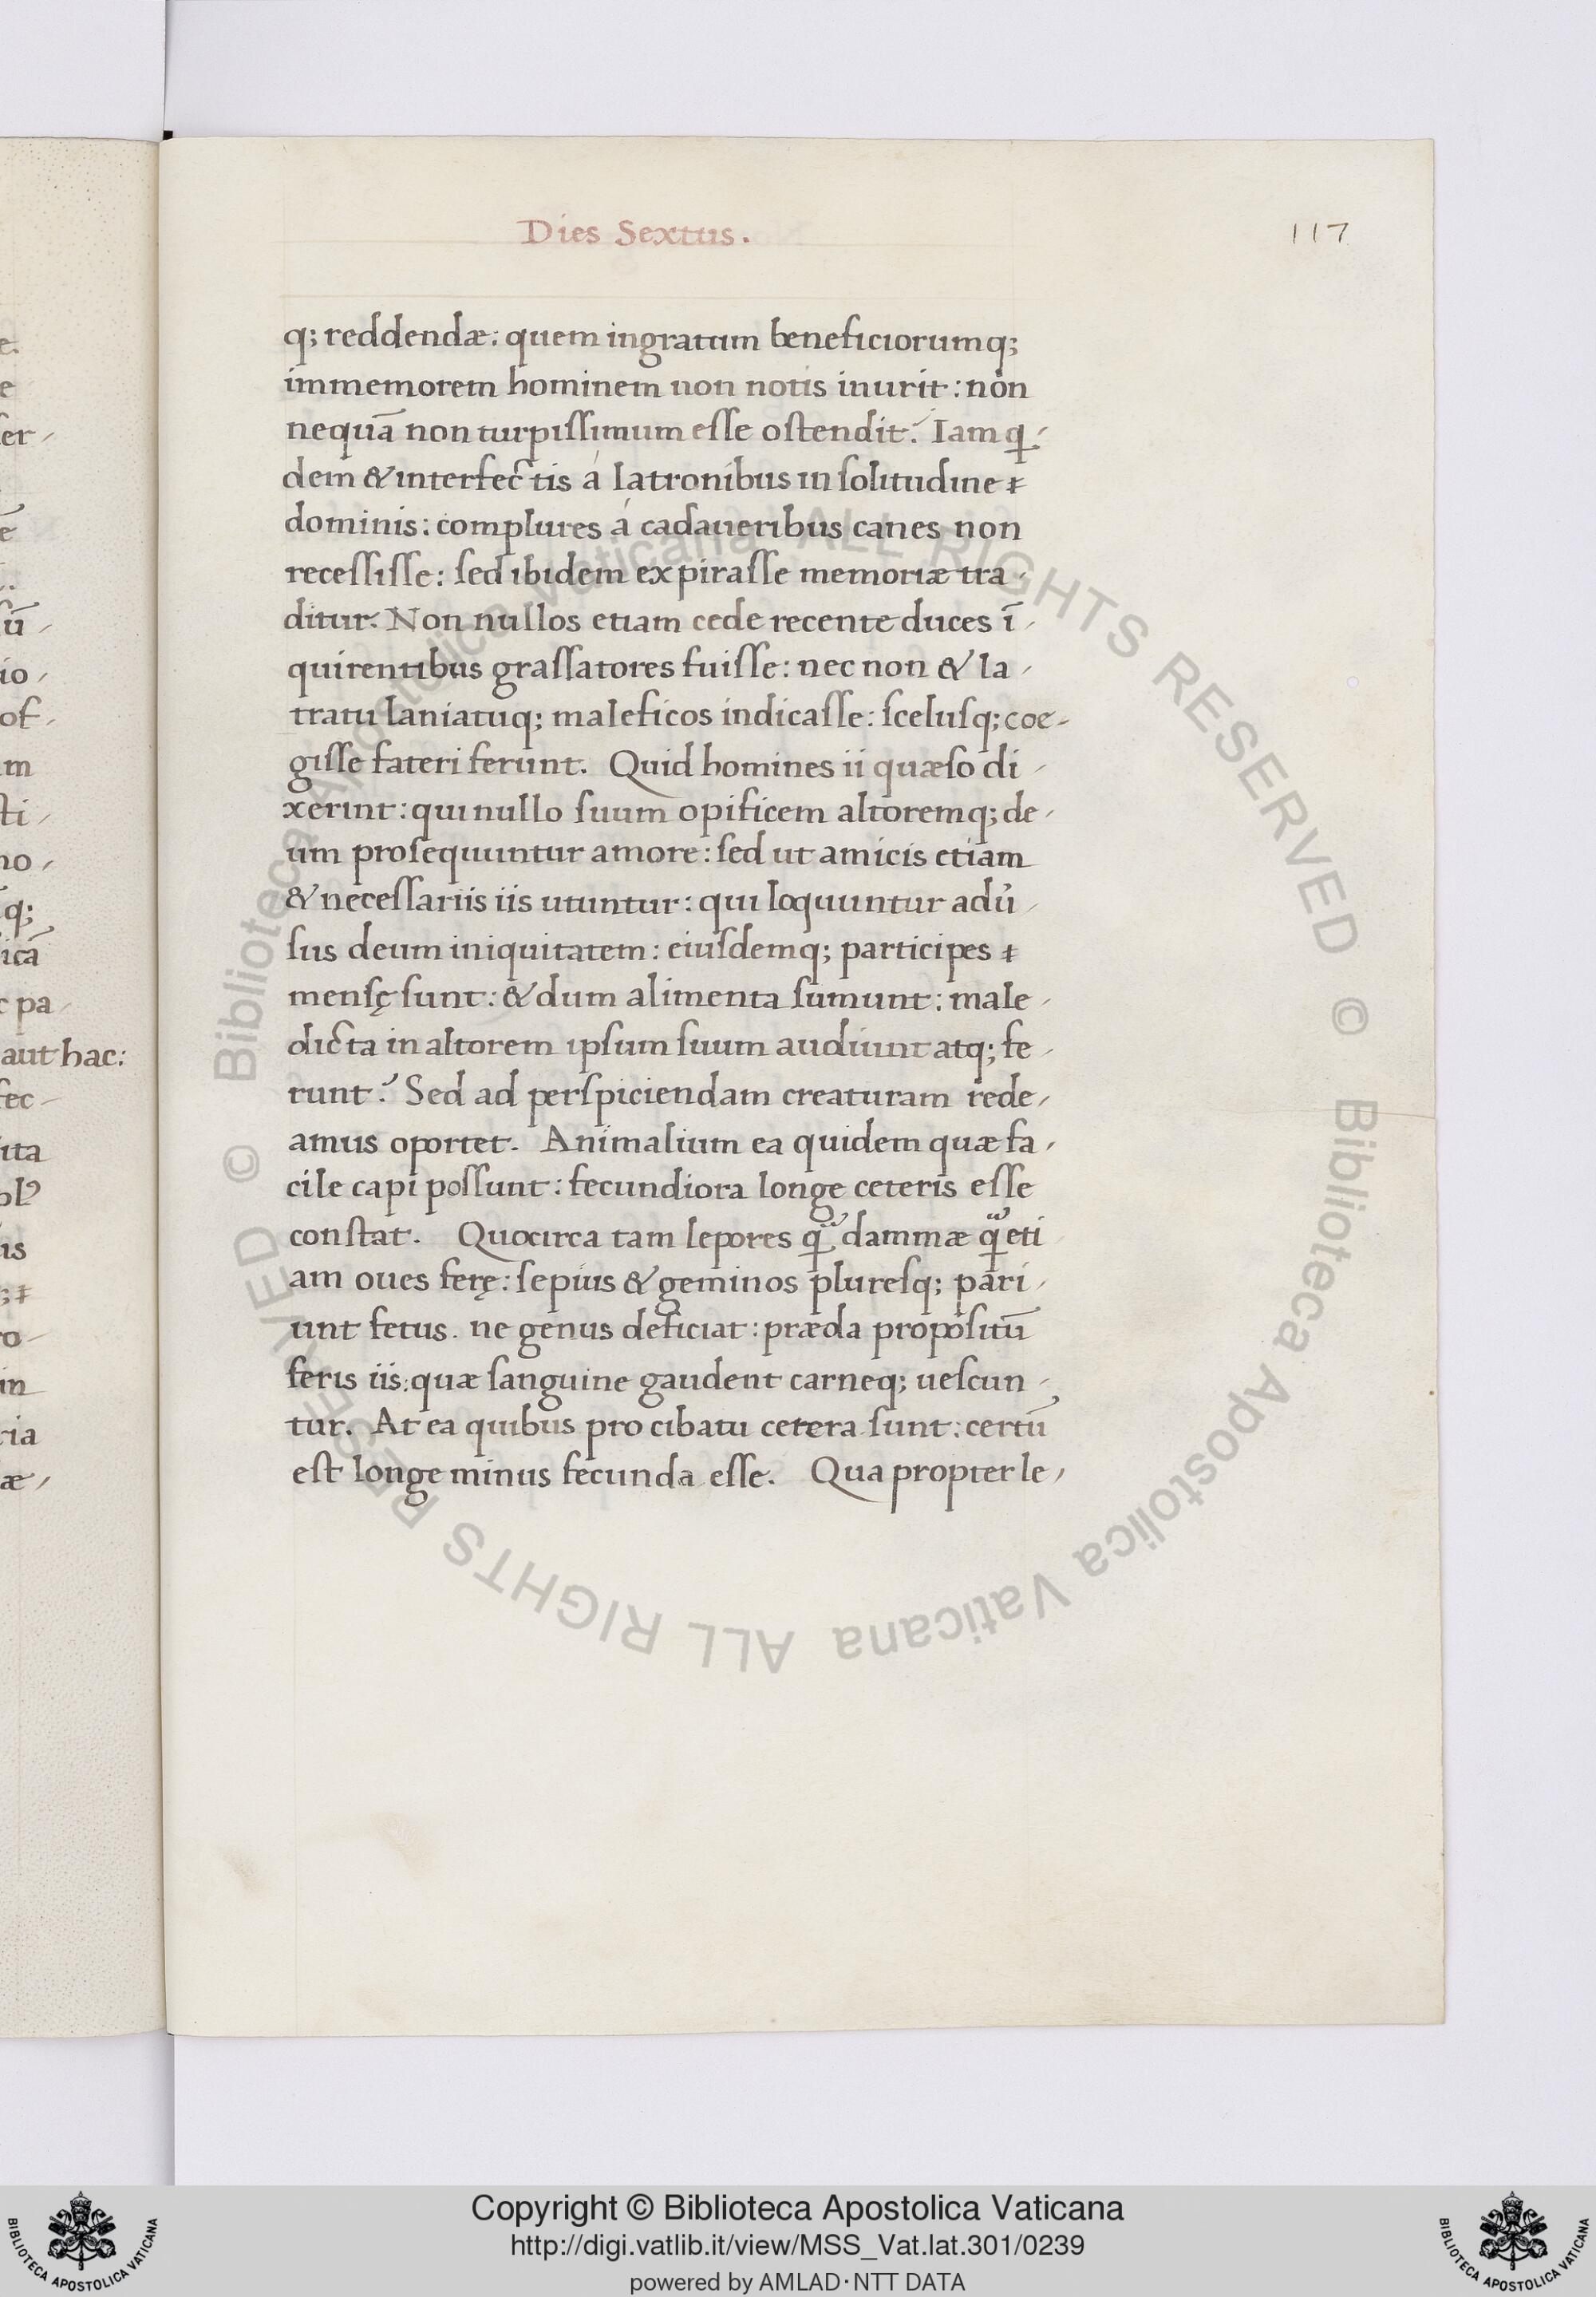 Dies Sextus.
117
q; reddendæ: quem ingratum beneficiorumq;
immemorem hominem non notis inurit: non
nequā non turpissimum esse ostendit? Iam q
dem & interfectis á latronibus in solitudine
dominis: complures á cadaueribus canes non
recessisse: sed ibidem expirasse memoriæ tra-
ditur. Non nullos etiam cede recente duces ī-
quirentibus grassatores fuisse: nec non & la-
tratu laniatuq; maleficos indicasse: scelusq; coe-
gisse fateri ferunt. Quid homines ii quæso di-
xerint: qui nullo suum opificem altoremq; de-
um prosequuntur amore: sed ut amicis etiam
& necessariis iis utuntur: qui loquuntur adū-
sus deum iniquitatem: eiusdemq; participes
mensę sunt: & dum alimenta sumunt: male-
dicta in altorem ipsum suum audiunt atq; fe-
runt? Sed ad perspiciendam creaturam rede-
amus oportet. Animalium ea quidem quæ fa-
cile capi possunt: fecundiora longe ceteris esse
constat. Quocirca tam lepores q̃ dammæ q̃ eti
am oues ferę: sepius & geminos pluresq; pari-
unt fetus. ne genus deficiat: præda propositū
feris iis: quæ sanguine gaudent carneq; uescun-
tur. At ea quibus pro cibatu cetera sunt: certū
est longe minus fecunda esse. Qua propter le-
e.
e
er-
ē
ū-
io-
of-
m
sti-
no-
q;
icā
pa-
aut hac:
fec-
ita
is
ro-
in
ria
æ-
© Biblioteca Apostolica Vaticana ALL RIGHTS RESERVED © Biblioteca Apostolica Vaticana ALL RIGHTS RESERVED
Copyright © Biblioteca Apostolica Vaticana
http://digi.vatlib.it/view/MSS_Vat.lat.301/0239
powered by AMLAD·NTT DATA
BIBLIOTECA APOSTOLICA VATICANA
BIBLIOTECA APOSTOLICA VATICANA